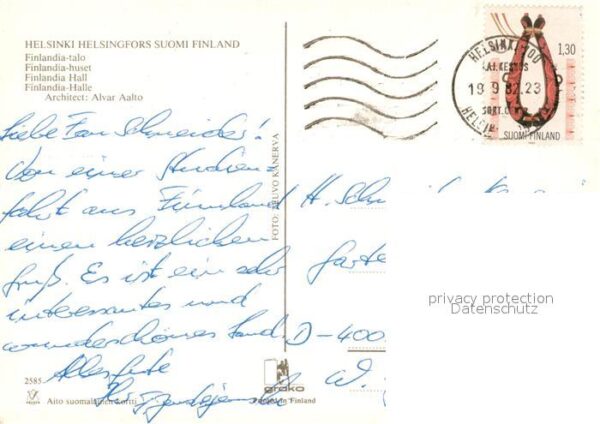 HELSINKI HELSINGFORS SUOMI FINLAND
Finlandia-talo
Finlandia-huset
Finlandia Hall
Finlandia-Halle
Architect: Alvar Aalto
HELSINKI
19 9 82.23
1,30
SUOMI FINLAND
Liebe Frau Schneider!
Von einer Studien-
fahrt aus Finnland
einen herzlichen
Gruß. Es ist ein sehr
interessantes und
wunderschönes Land.
Alles Gute
FOTO: TEUVO KANERVA
H. Sch
Garte
D-400
W.
privacy protection
Datenschutz
2585
Aito suomalainen kortti
grako
Printed in Finland